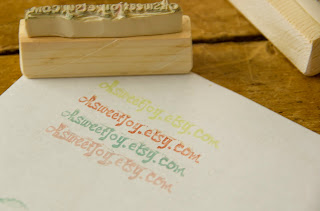 Asweetjoy.etsy.com
Asweetjoy.etsy.com
Asweetjoy.etsy.com
Asweetjoy.etsy.com